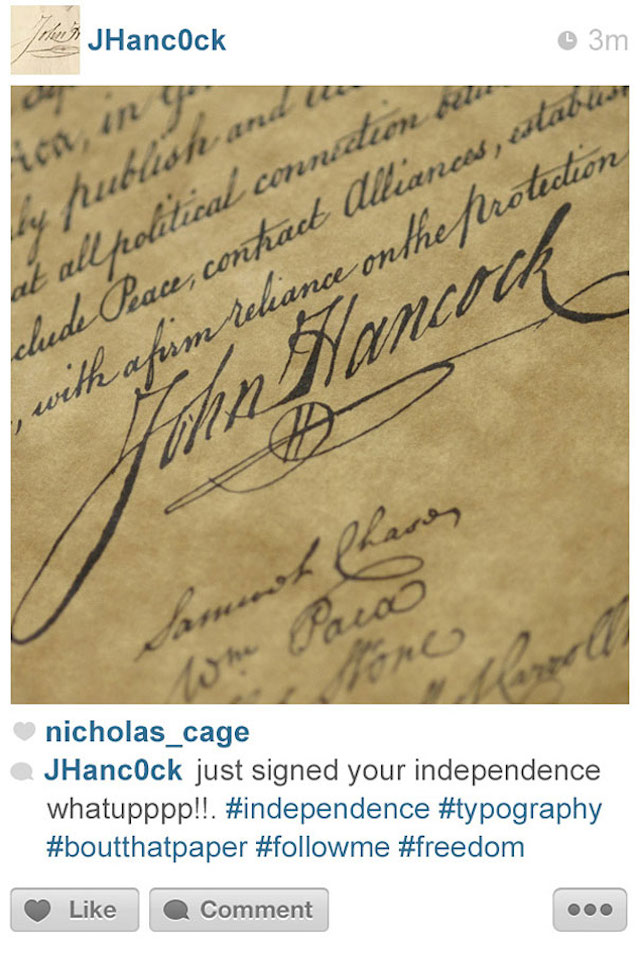 John H
JHanc0ck 3m
in
by publish and
at all political connection
clude Peace, contract Alliances, establish
, with a firm reliance on the Protection
John Hancock
Samuel Chase
Wm Paca
Stone
Carroll
nicholas_cage
JHanc0ck just signed your independence
whatupppp!!. #independence #typography
#boutthatpaper #followme #freedom
Like Comment